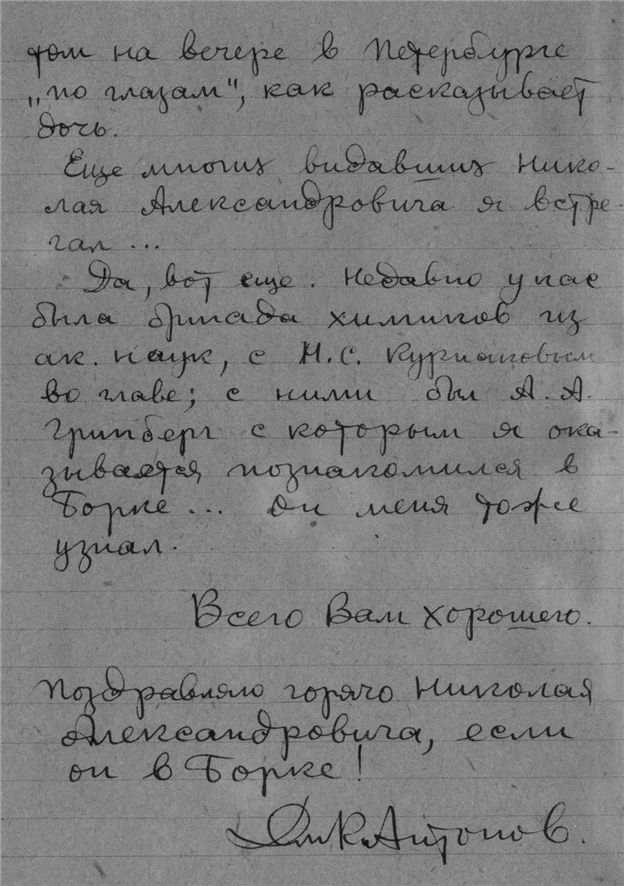 том на вечере в Петербурге
„по глазам", как расказывает
дочь.
Еще многих видавших Нико-
лая Александровича я встре-
чал ...
Да, вот еще. Недавно у нас
была бригада химиков из
ак. наук, с Н.С. Курнаковым
во главе; с ними был А. А.
Гринберг с которым я ока-
зывается познакомился в
Борке... Он меня тоже
узнал.
Всего Вам хорошего.
Поздравляю горячо Николая
Александровича, если
он в Борке!
Антонов.